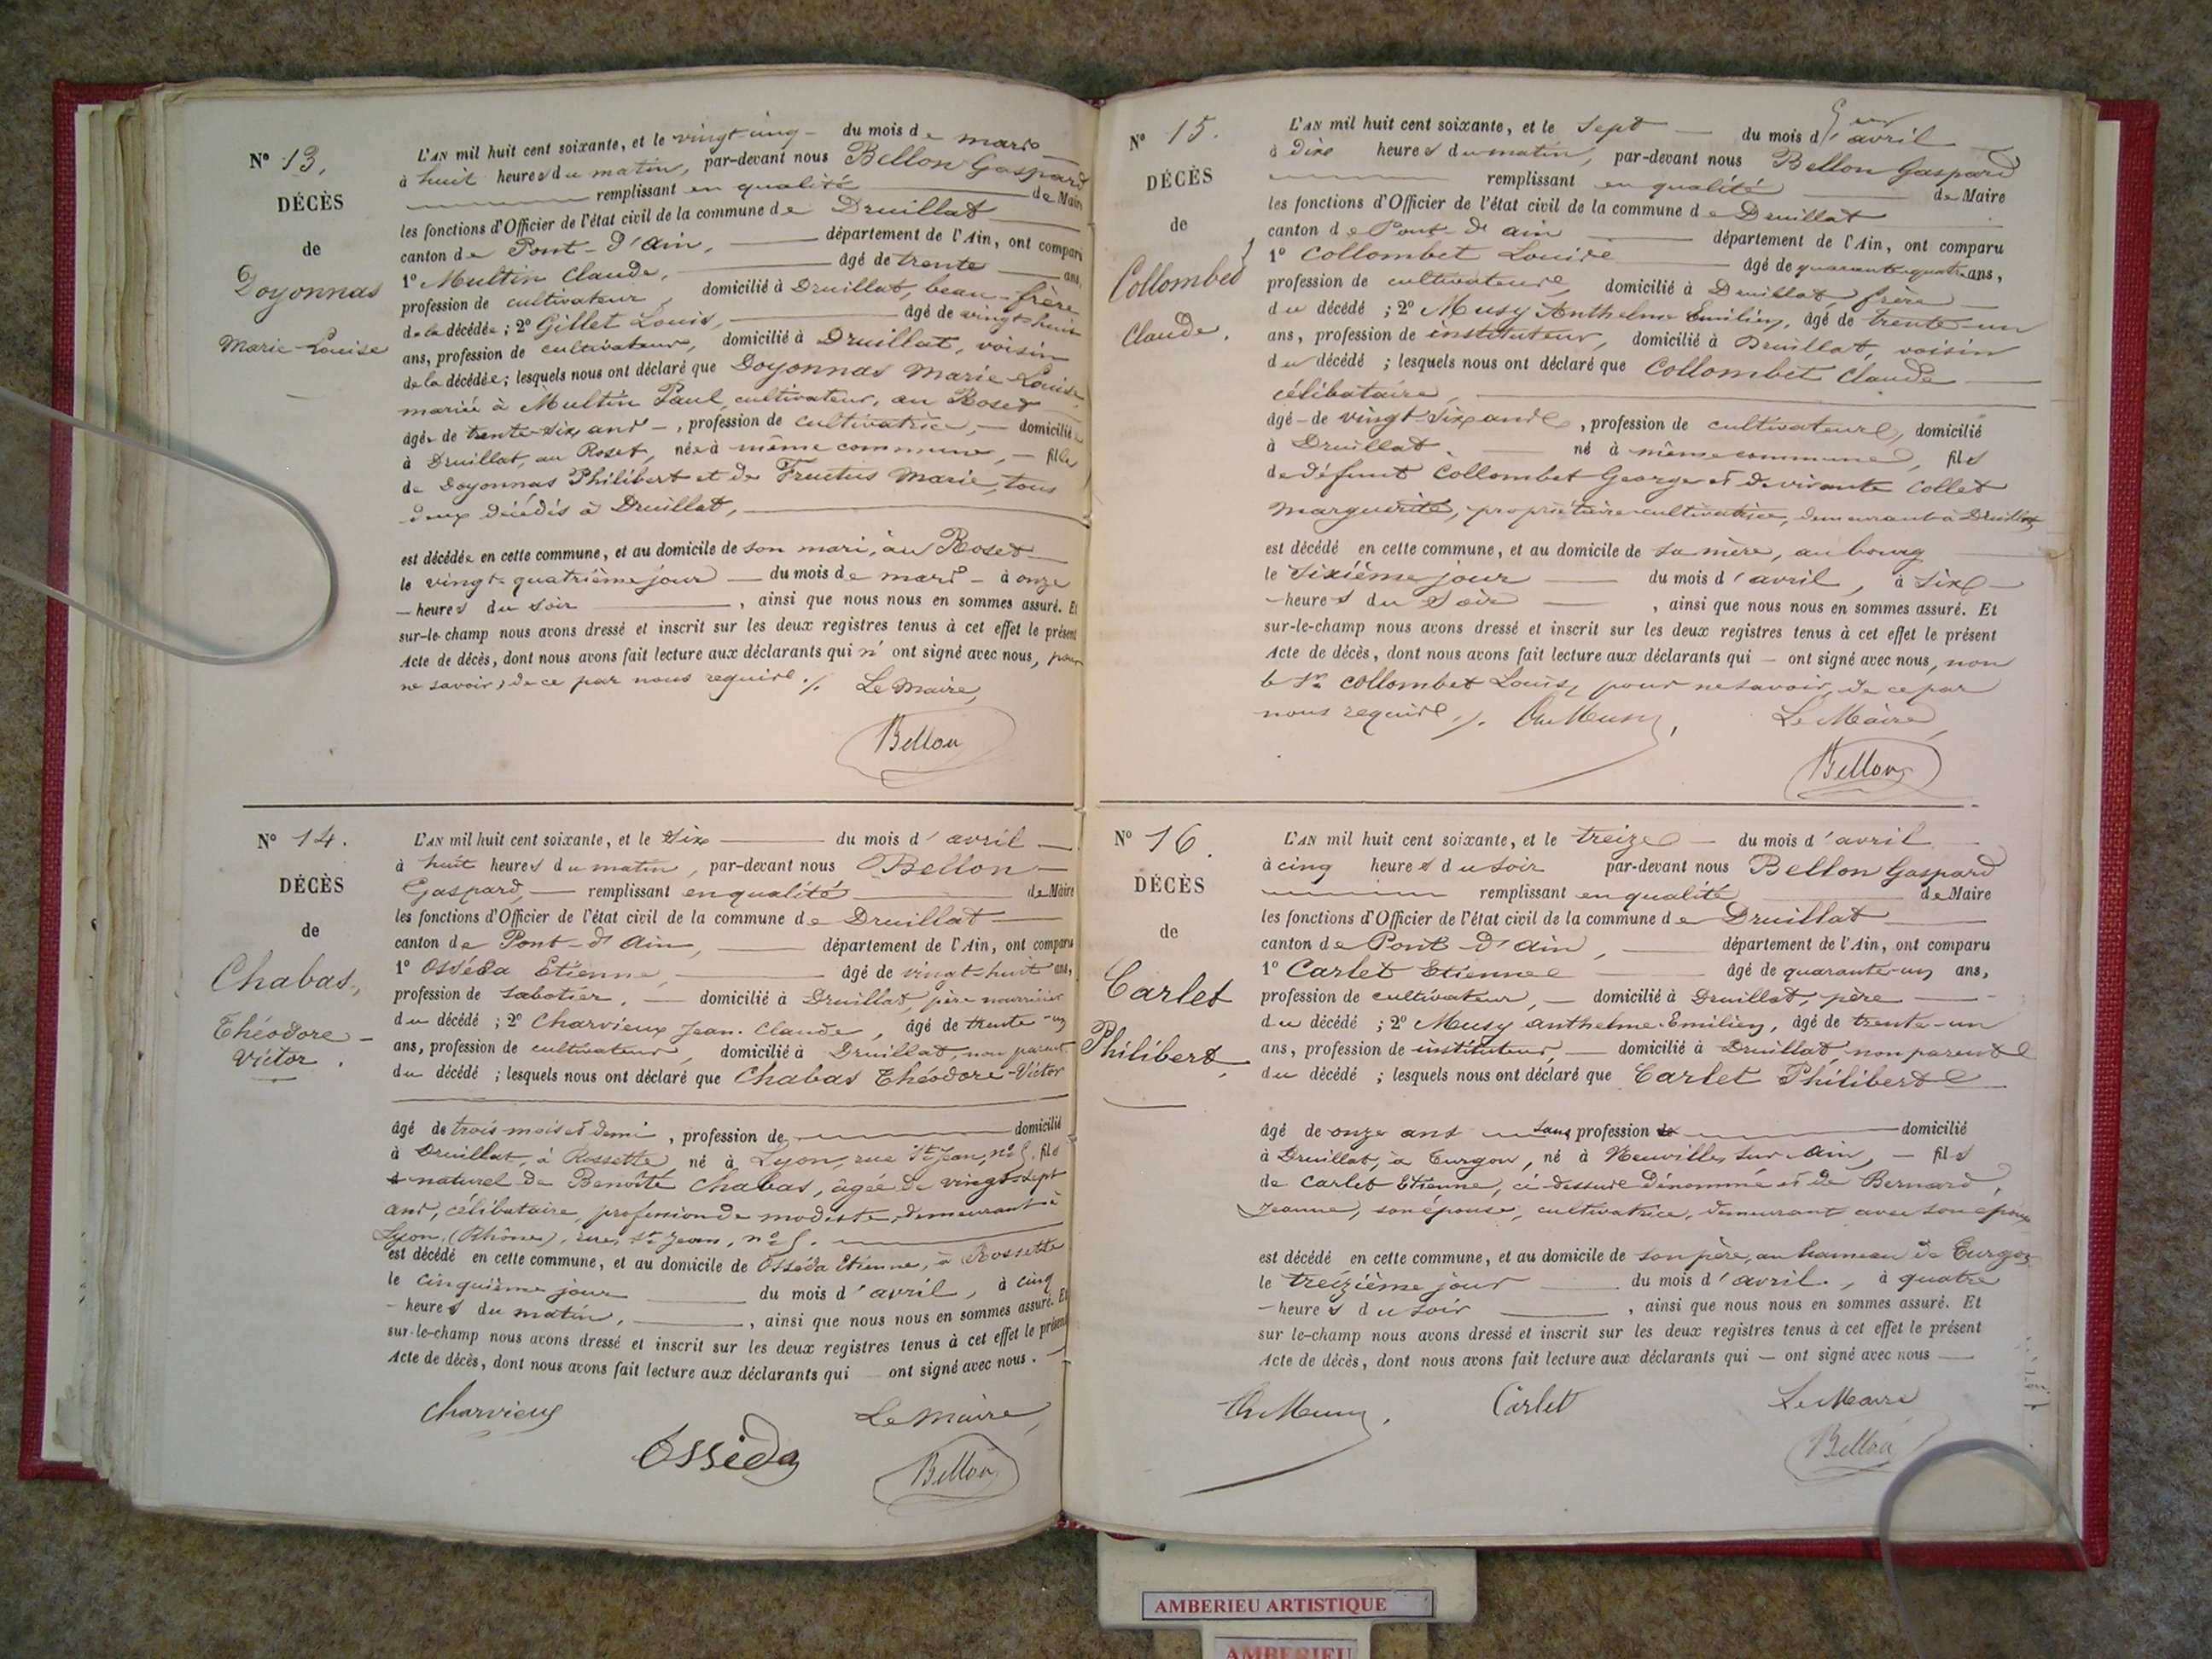 N° 13.
DÉCÈS
de
Doyonnas
Marie-Louise
L'AN mil huit cent soixante, et le vingt-cinq du mois de mars
à huit heures du matin, par-devant nous Bellon Gaspard
remplissant en qualité de Maire
les fonctions d'Officier de l'état civil de la commune de Druillat
canton de Pont-d'Ain, département de l'Ain, ont comparu
1° Multin Claude, âgé de trente ans,
profession de cultivateur, domicilié à Druillat, beau-frère
de la décédée ; 2° Gillet Louis, âgé de vingt-huit
ans, profession de cultivateur, domicilié à Druillat, voisin
de la décédée ; lesquels nous ont déclaré que Doyonnas Marie-Louise
mariée à Multin Paul, cultivateur, au Roset
âgée de trente-six ans, profession de cultivatrice, domiciliée
à Druillat, au Roset, née à même commune, fille
de Doyonnas Philibert et de Frutus Marie, tous
deux décédés à Druillat,
est décédée en cette commune, et au domicile de son mari, au Roset
le vingt-quatrième jour du mois de mars à onze
heures du soir, ainsi que nous nous en sommes assuré. Et
sur-le-champ nous avons dressé et inscrit sur les deux registres tenus à cet effet le présent
Acte de décès, dont nous avons fait lecture aux déclarants qui n'ont signé avec nous, pour
ne savoir, de ce par nous requis ./. Le Maire,
Bellon
N° 14.
DÉCÈS
de
Chabas,
Théodore-
Victor.
L'AN mil huit cent soixante, et le six du mois d'avril
à huit heures du matin, par-devant nous Bellon
Gaspard, remplissant en qualité de Maire
les fonctions d'Officier de l'état civil de la commune de Druillat
canton de Pont-d'Ain, département de l'Ain, ont comparu
1° Osséda Etienne, âgé de vingt-huit ans,
profession de sabotier, domicilié à Druillat, père nourricier
du décédé ; 2° Charvieux Jean-Claude, âgé de trente-un
ans, profession de cultivateur, domicilié à Druillat, non parent
du décédé ; lesquels nous ont déclaré que Chabas Théodore-Victor
âgé de trois mois et demi, profession de domicilié
à Druillat, à Rossette, né à Lyon, rue St Jean, n° 5, fils
naturel de Benoîte Chabas, âgée de vingt-sept
ans, célibataire, profession de modiste, demeurant à
Lyon (Rhône), rue St Jean, n° 5.
est décédé en cette commune, et au domicile de Osséda Etienne, à Rossette
le cinquième jour du mois d'avril, à cinq
heures du matin, ainsi que nous nous en sommes assuré. Et
sur-le-champ nous avons dressé et inscrit sur les deux registres tenus à cet effet le présent
Acte de décès, dont nous avons fait lecture aux déclarants qui ont signé avec nous.
Charvieux
Le Maire,
Osseda
Bellon
N° 15.
DÉCÈS
de
Collombet
Claude.
L'AN mil huit cent soixante, et le sept du mois d'avril
à dix heures du matin, par-devant nous Bellon Gaspard
remplissant en qualité de Maire
les fonctions d'Officier de l'état civil de la commune de Druillat
canton de Pont-d'ain département de l'Ain, ont comparu
1° Collombet Louis âgé de quarante-quatre ans,
profession de cultivateur, domicilié à Druillat frère
du décédé ; 2° Musy Anthelme Emilien, âgé de trente-un
ans, profession de instituteur, domicilié à Druillat, voisin
du décédé ; lesquels nous ont déclaré que Collombet Claude
célibataire,
âgé de vingt-six ans, profession de cultivateur, domicilié
à Druillat, né à même commune, fils
de défunt Collombet George et de vivante Collet
Marguerite, propriétaire-cultivatrice, demeurant à Druillat
est décédé en cette commune, et au domicile de sa mère, au bourg
le sixième jour du mois d'avril, à six
heures du soir, ainsi que nous nous en sommes assuré. Et
sur-le-champ nous avons dressé et inscrit sur les deux registres tenus à cet effet le présent
Acte de décès, dont nous avons fait lecture aux déclarants qui ont signé avec nous, non
le Sr Collombet Louis, pour ne savoir, de ce par
nous requis ./. Musy, Le Maire,
Bellon
N° 16.
DÉCÈS
de
Carlet
Philibert,
L'AN mil huit cent soixante, et le treize du mois d'avril
à cinq heures du soir par-devant nous Bellon Gaspard
remplissant en qualité de Maire
les fonctions d'Officier de l'état civil de la commune de Druillat
canton de Pont-d'ain, département de l'Ain, ont comparu
1° Carlet Etienne âgé de quarante-un ans,
profession de cultivateur, domicilié à Druillat, père
du décédé ; 2° Musy anthelme-Emilien, âgé de trente-un
ans, profession de instituteur, domicilié à Druillat, non parent
du décédé ; lesquels nous ont déclaré que Carlet Philibert
âgé de onze ans sans profession de domicilié
à Druillat, à Turgon, né à Neuville sur ain, fils
de Carlet Etienne, ci-dessus dénommé et de Bernard,
Jeanne, son épouse, cultivatrice, demeurant avec son époux
est décédé en cette commune, et au domicile de son père, au hameau de Turgon
le treizième jour du mois d'avril, à quatre
heures du soir, ainsi que nous nous en sommes assuré. Et
sur-le-champ nous avons dressé et inscrit sur les deux registres tenus à cet effet le présent
Acte de décès, dont nous avons fait lecture aux déclarants qui ont signé avec nous
Musy, Carlet Le Maire
Bellon
AMBERIEU ARTISTIQUE
AMBERIEU